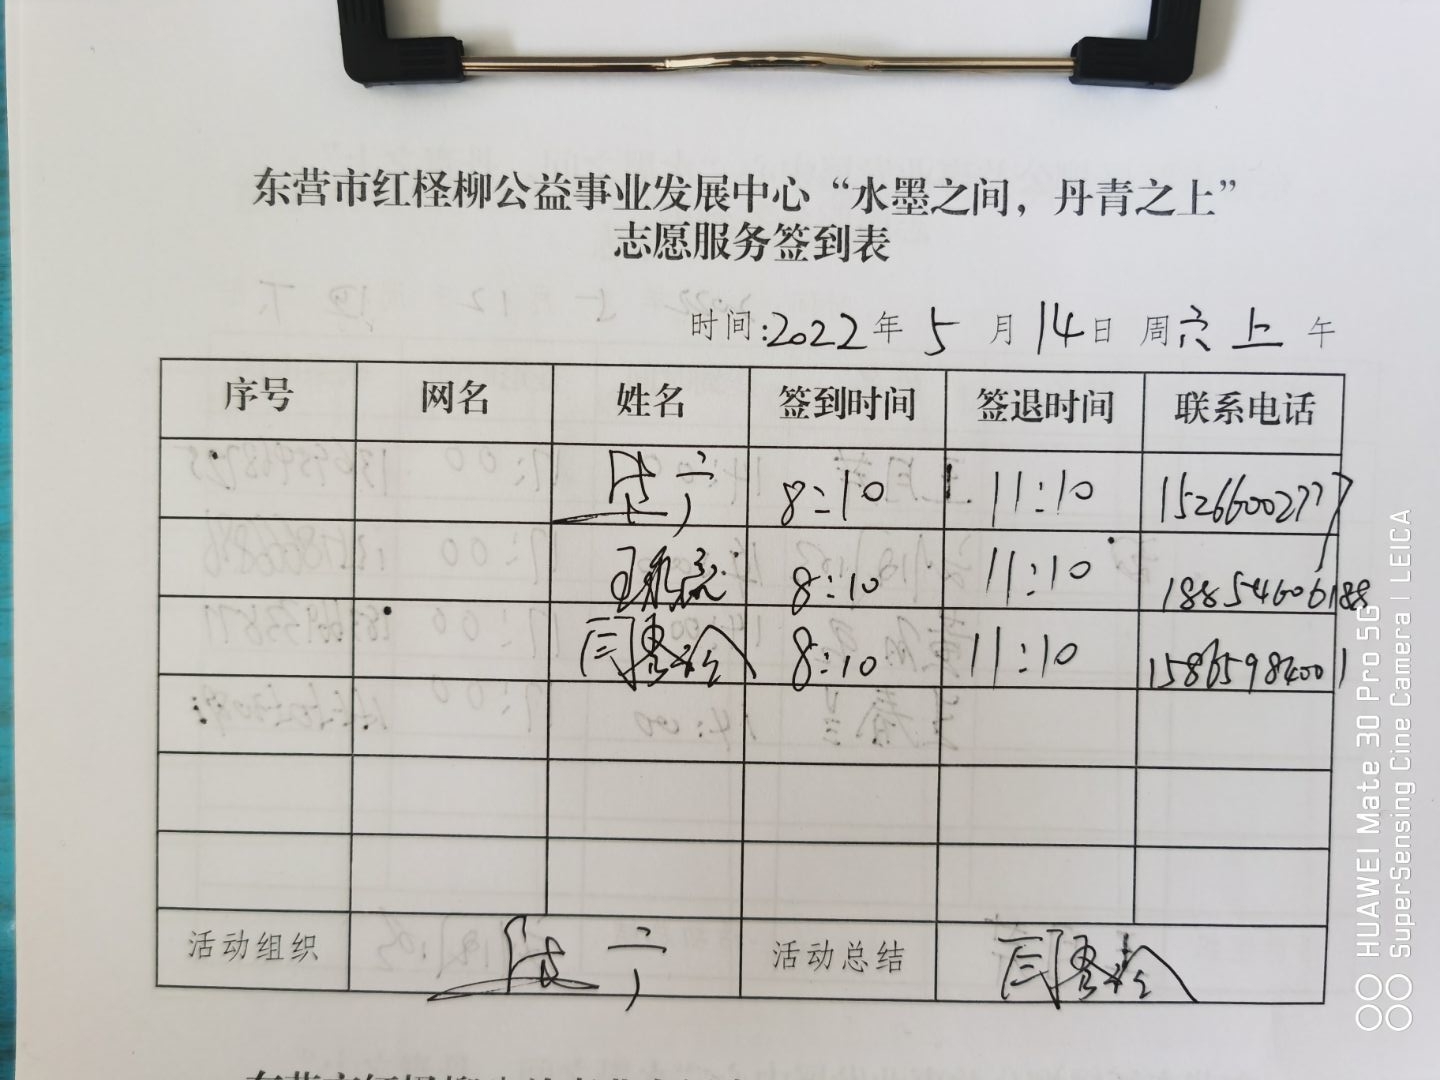 东营市红柽柳公益事业发展中心“水墨之间，丹青之上”
志愿服务签到表
时间:2022年 5 月 14日 周六 上 午
序号 网名 姓名 签到时间 签退时间 联系电话
8:10 11:10 15266002777
8:10 11:10 18854606188
8:10 11:10 15865984001
活动组织 活动总结
HUAWEI Mate 30 Pro 5G
SuperSensing Cine Camera | LEICA